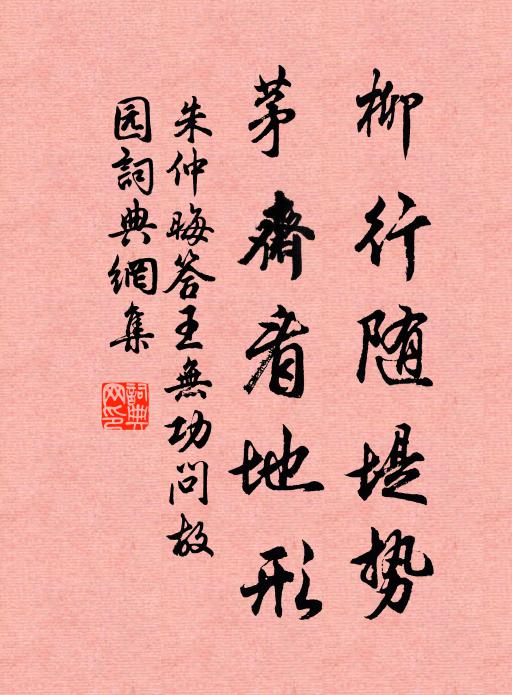 柳行随堤势
茅齋看地形
朱仲晦答王無功問故
园詞典網集
詞典
网印